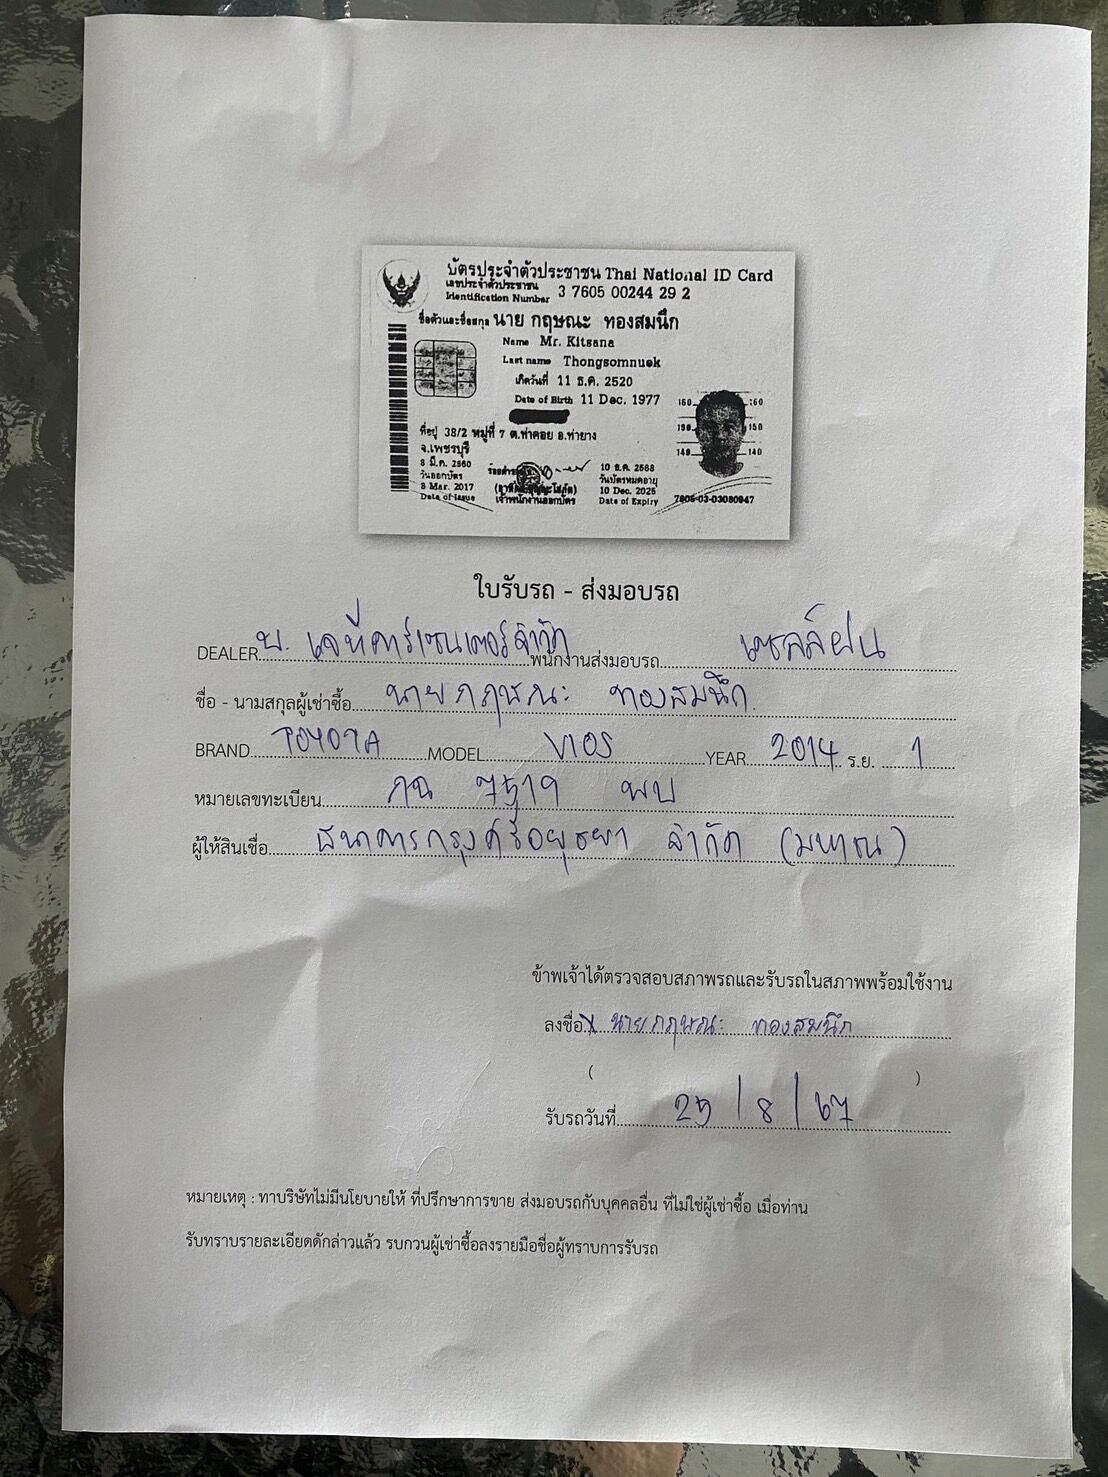 บัตรประจำตัวประชาชน Thai National ID Card
เลขประจำตัวประชาชน
Identification Number 3 7605 00244 29 2
ชื่อตัวและชื่อสกุล นาย กฤษณะ ทองสมนึก
Name Mr. Kitsana
Last name Thongsomnuek
เกิดวันที่ 11 ธ.ค. 2520
Date of Birth 11 Dec. 1977
ที่อยู่ 38/2 หมู่ที่ 7 ต.ท่าคอย อ.ท่ายาง
จ.เพชรบุรี
8 มี.ค. 2560
วันออกบัตร
8 Mar. 2017
Date of Issue
เจ้าพนักงานออกบัตร
10 ธ.ค. 2568
วันบัตรหมดอายุ
10 Dec. 2025
Date of Expiry
160 160
150 150
140 140
7605-03-03080947
ใบรับรถ - ส่งมอบรถ
DEALER บ. เจทีคาร์เซนเตอร์จำกัด พนักงานส่งมอบรถ เซลล์ฝน
ชื่อ - นามสกุลผู้เช่าซื้อ นายกฤษณะ ทองสมนึก
BRAND TOYOTA MODEL VIOS YEAR 2014 ร.ย. 1
หมายเลขทะเบียน กฉ 7519 พบ
ผู้ให้สินเชื่อ ธนาคารกรุงศรีอยุธยา จำกัด (มหาชน)
ข้าพเจ้าได้ตรวจสอบสภาพรถและรับรถในสภาพพร้อมใช้งาน
ลงชื่อ x นายกฤษณะ ทองสมนึก
( )
รับรถวันที่ 25/8/67
หมายเหตุ : ทาบริษัทไม่มีนโยบายให้ ที่ปรึกษาการขาย ส่งมอบรถกับบุคคลอื่น ที่ไม่ใช่ผู้เช่าซื้อ เมื่อท่าน
รับทราบรายละเอียดดักล่าวแล้ว รบกวนผู้เช่าซื้อลงรายมือชื่อผู้ทราบการรับรถ